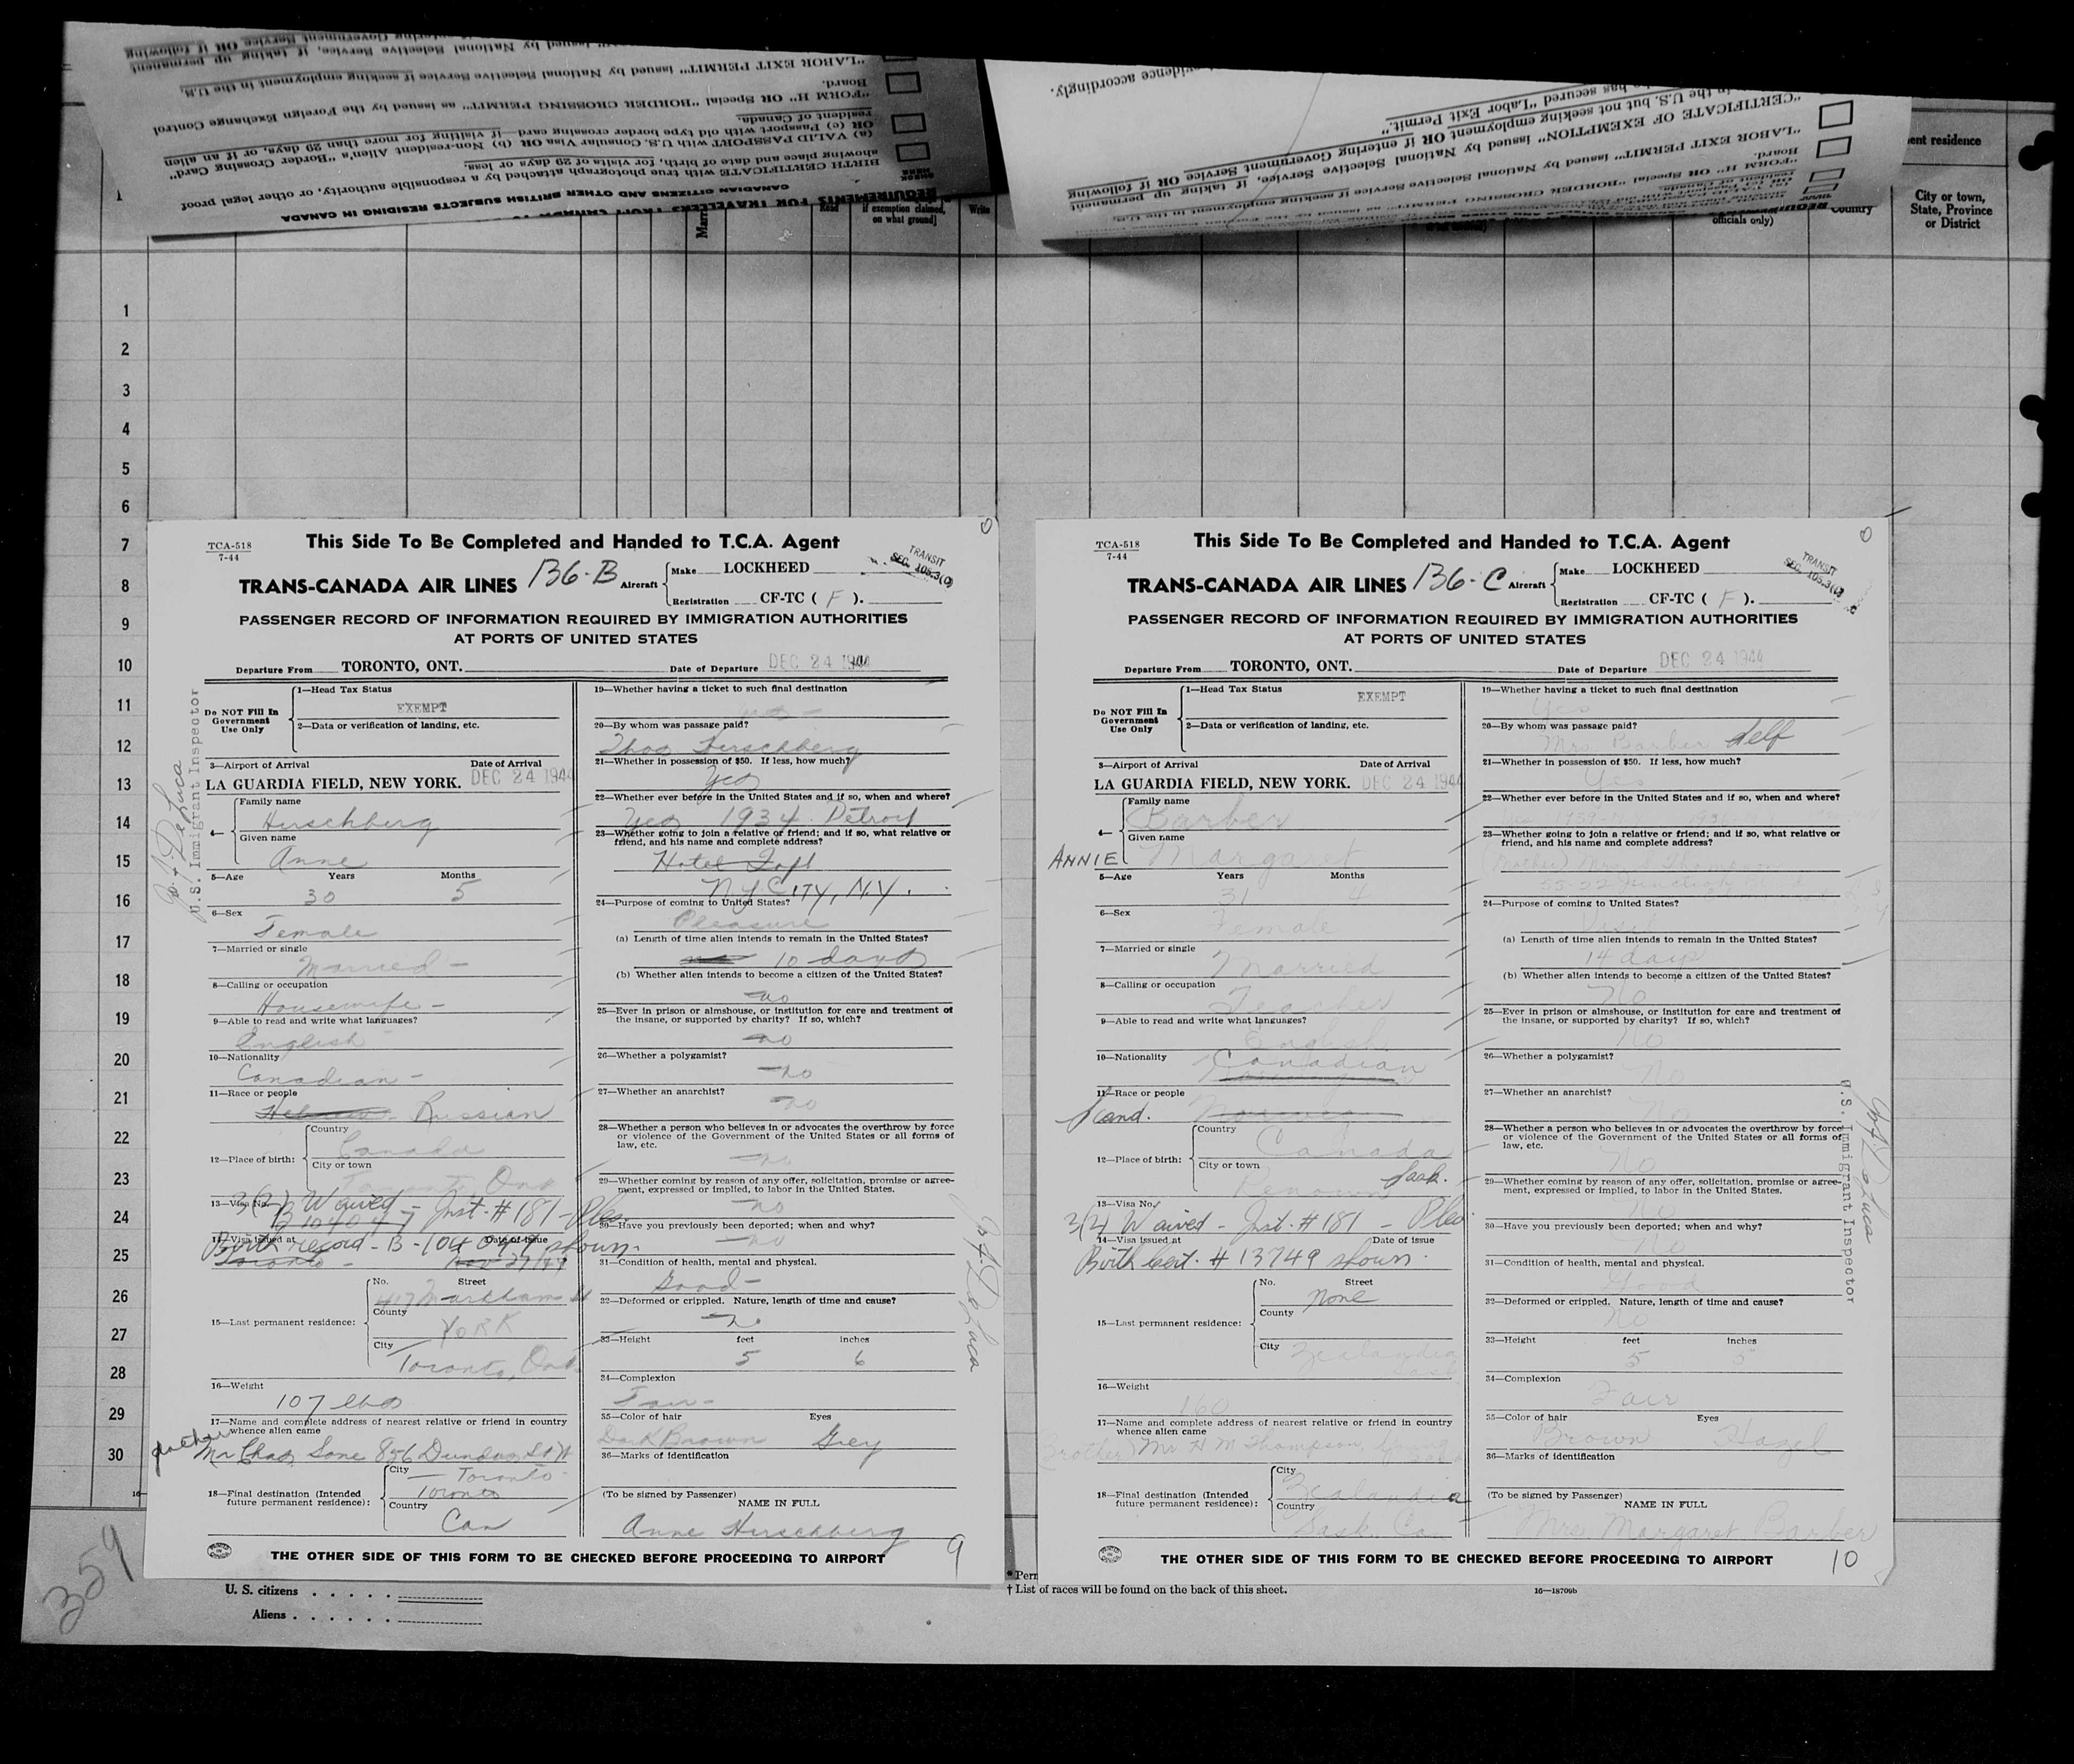 entering Government Service OR if following
"LABOR EXIT PERMIT" issued by National Selective Service, if taking up permanent
"LABOR EXIT PERMIT" issued by National Selective Service if seeking employment in the U.S.
Board.
"FORM H" OR Special "BORDER CROSSING PERMIT" as issued by the Foreign Exchange Control
resident of Canada.
OR (c) Passport with old type border crossing card—if visiting for more than 29 days, or if an alien
(a) VALID PASSPORT with U.S. Consular Visa OR (b) Non-resident Alien's "Border Crossing Card"
showing place and date of birth, for visits of 29 days or less.
BIRTH CERTIFICATE with true photograph attached by a responsible authority, or other legal proof
CANADIAN CITIZENS AND OTHER BRITISH SUBJECTS RESIDING IN CANADA
CHECK HERE
REQUIREMENTS FOR TRAVELLERS FROM CANADA TO
evidence accordingly.
has secured "Labor Exit Permit."
in the U.S. but not seeking employment OR if entering Government Service OR if following
"CERTIFICATE OF EXEMPTION" issued by National Selective Service, if taking up permanent
"LABOR EXIT PERMIT" issued by National Selective Service if seeking employment in the U.S.
Board.
"FORM H" OR Special "BORDER CROSSING PERMIT" as issued by the
1
Read
if exemption claimed, on what ground]
Write
officials only)
Country
ent residence
City or town, State, Province or District
1
2
3
4
5
6
7
8
9
10
11
12
13
14
15
16
17
18
19
20
21
22
23
24
25
26
27
28
29
30
TCA-518
7-44
This Side To Be Completed and Handed to T.C.A. Agent
TRANS-CANADA AIR LINES 136-B Aircraft
Make LOCKHEED
Registration CF-TC ( F ).
TRANSIT
SEC. 105.3(0)
PASSENGER RECORD OF INFORMATION REQUIRED BY IMMIGRATION AUTHORITIES
AT PORTS OF UNITED STATES
Departure From TORONTO, ONT. Date of Departure DEC 24 1944
Do NOT Fill In Government Use Only
1—Head Tax Status
EXEMPT
2—Data or verification of landing, etc.
3—Airport of Arrival Date of Arrival
LA GUARDIA FIELD, NEW YORK. DEC 24 1944
4—
Family name
Hirschberg
Given name
Anne
5—Age Years Months
30 5
6—Sex
Female
7—Married or single
Married -
8—Calling or occupation
Housewife -
9—Able to read and write what languages?
English
10—Nationality
Canadian -
11—Race or people
Hebrew - Russian
12—Place of birth:
Country
Canada
City or town
Toronto Ont
13—Visa No.
3(2) Waived - Inst. # 181 - Pleas
B 104047
14—Visa issued at Date of issue
Birth record - B - 104047 shown.
Toronto - Nov 27/44
15—Last permanent residence:
No. Street
417 Markham St
County
YORK
City
Toronto, Ont
16—Weight
107 lbs
17—Name and complete address of nearest relative or friend in country
whence alien came
father
Mr Chas. Sone 856 Dundas St W
— Toronto
18—Final destination (Intended future permanent residence):
City
Toronto
Country
Can
19—Whether having a ticket to such final destination
yes -
20—By whom was passage paid?
Thos Hirschberg
21—Whether in possession of $50. If less, how much?
Yes
22—Whether ever before in the United States and if so, when and where?
Yes 1934 Detroit
23—Whether going to join a relative or friend; and if so, what relative or
friend, and his name and complete address?
Hotel Taft
N.Y. CITY, N.Y.
24—Purpose of coming to United States?
Pleasure
(a) Length of time alien intends to remain in the United States?
10 days
(b) Whether alien intends to become a citizen of the United States?
no
25—Ever in prison or almshouse, or institution for care and treatment of
the insane, or supported by charity? If so, which?
no
26—Whether a polygamist?
no
27—Whether an anarchist?
no
28—Whether a person who believes in or advocates the overthrow by force
or violence of the Government of the United States or all forms of
law, etc.
no
29—Whether coming by reason of any offer, solicitation, promise or agree-
ment, expressed or implied, to labor in the United States.
no
30—Have you previously been deported; when and why?
no
31—Condition of health, mental and physical.
Good -
32—Deformed or crippled. Nature, length of time and cause?
33—Height feet inches
5 6
34—Complexion
Fair -
35—Color of hair Eyes
Dark Brown Grey
36—Marks of identification
(To be signed by Passenger)
NAME IN FULL
Anne Hirschberg
9
THE OTHER SIDE OF THIS FORM TO BE CHECKED BEFORE PROCEEDING TO AIRPORT
U.S. Immigrant Inspector
TCA-518
7-44
This Side To Be Completed and Handed to T.C.A. Agent
TRANS-CANADA AIR LINES 136-C Aircraft
Make LOCKHEED
Registration CF-TC ( F ).
TRANSIT
SEC. 105.3(0)
PASSENGER RECORD OF INFORMATION REQUIRED BY IMMIGRATION AUTHORITIES
AT PORTS OF UNITED STATES
Departure From TORONTO, ONT. Date of Departure DEC 24 1944
Do NOT Fill In Government Use Only
1—Head Tax Status
EXEMPT
2—Data or verification of landing, etc.
3—Airport of Arrival Date of Arrival
LA GUARDIA FIELD, NEW YORK. DEC 24 1944
4—
Family name
Barber
Given name
ANNIE Margaret
5—Age Years Months
31 4
6—Sex
Female
7—Married or single
Married
8—Calling or occupation
Teacher
9—Able to read and write what languages?
English
10—Nationality
Canadian
11—Race or people
Scand.
12—Place of birth:
Country
Canada
City or town
Renown Sask.
13—Visa No.
3(2) Waived - Inst. # 181 - Pleas.
14—Visa issued at Date of issue
Birth cert. # 13749 shown.
15—Last permanent residence:
No. Street
none
County
City
Zealandia
Sask
16—Weight
160
17—Name and complete address of nearest relative or friend in country
whence alien came
(brother) Mr H M Thompson
18—Final destination (Intended future permanent residence):
City
Zealandia
Country
Sask. Ca
19—Whether having a ticket to such final destination
Yes
20—By whom was passage paid?
Mrs Barber self
21—Whether in possession of $50. If less, how much?
Yes
22—Whether ever before in the United States and if so, when and where?
23—Whether going to join a relative or friend; and if so, what relative or
friend, and his name and complete address?
24—Purpose of coming to United States?
Visit
(a) Length of time alien intends to remain in the United States?
14 days
(b) Whether alien intends to become a citizen of the United States?
No
25—Ever in prison or almshouse, or institution for care and treatment of
the insane, or supported by charity? If so, which?
No
26—Whether a polygamist?
No
27—Whether an anarchist?
No
28—Whether a person who believes in or advocates the overthrow by force
or violence of the Government of the United States or all forms of
law, etc.
No
29—Whether coming by reason of any offer, solicitation, promise or agree-
ment, expressed or implied, to labor in the United States.
No
30—Have you previously been deported; when and why?
No
31—Condition of health, mental and physical.
Good
32—Deformed or crippled. Nature, length of time and cause?
No
33—Height feet inches
5 5
34—Complexion
Fair
35—Color of hair Eyes
Brown Hazel
36—Marks of identification
(To be signed by Passenger)
NAME IN FULL
Mrs. Margaret Barber
10
THE OTHER SIDE OF THIS FORM TO BE CHECKED BEFORE PROCEEDING TO AIRPORT
U.S. Immigrant Inspector
359
U. S. citizens
Aliens
* Perm
† List of races will be found on the back of this sheet.
16—18709b